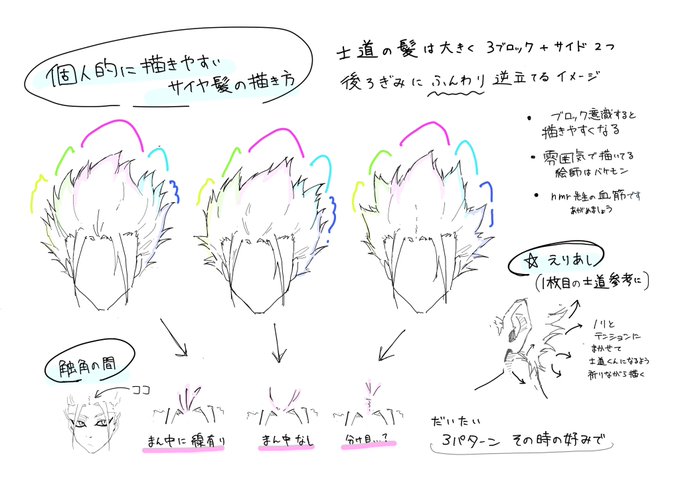 個人的に描きやすい
サイヤ髪の描き方
士道の髪は大きく 3ブロック + サイド 2つ
後ろぎみに ふんわり 逆立てる イメージ
・ ブロック意識すると
描きやすくなる
・ 雰囲気で描いてる
絵師はバケモン
・ nmr先生の血筋です
あがめましょう
☆ えりあし
(1枚目の士道参考に)
ノリと
テンションに
まかせて
士道くんになるよう
祈りながら描く
触角の間
ココ
まん中に線有り
まん中なし
分け目…?
だいたい
3パターン その時の好みで